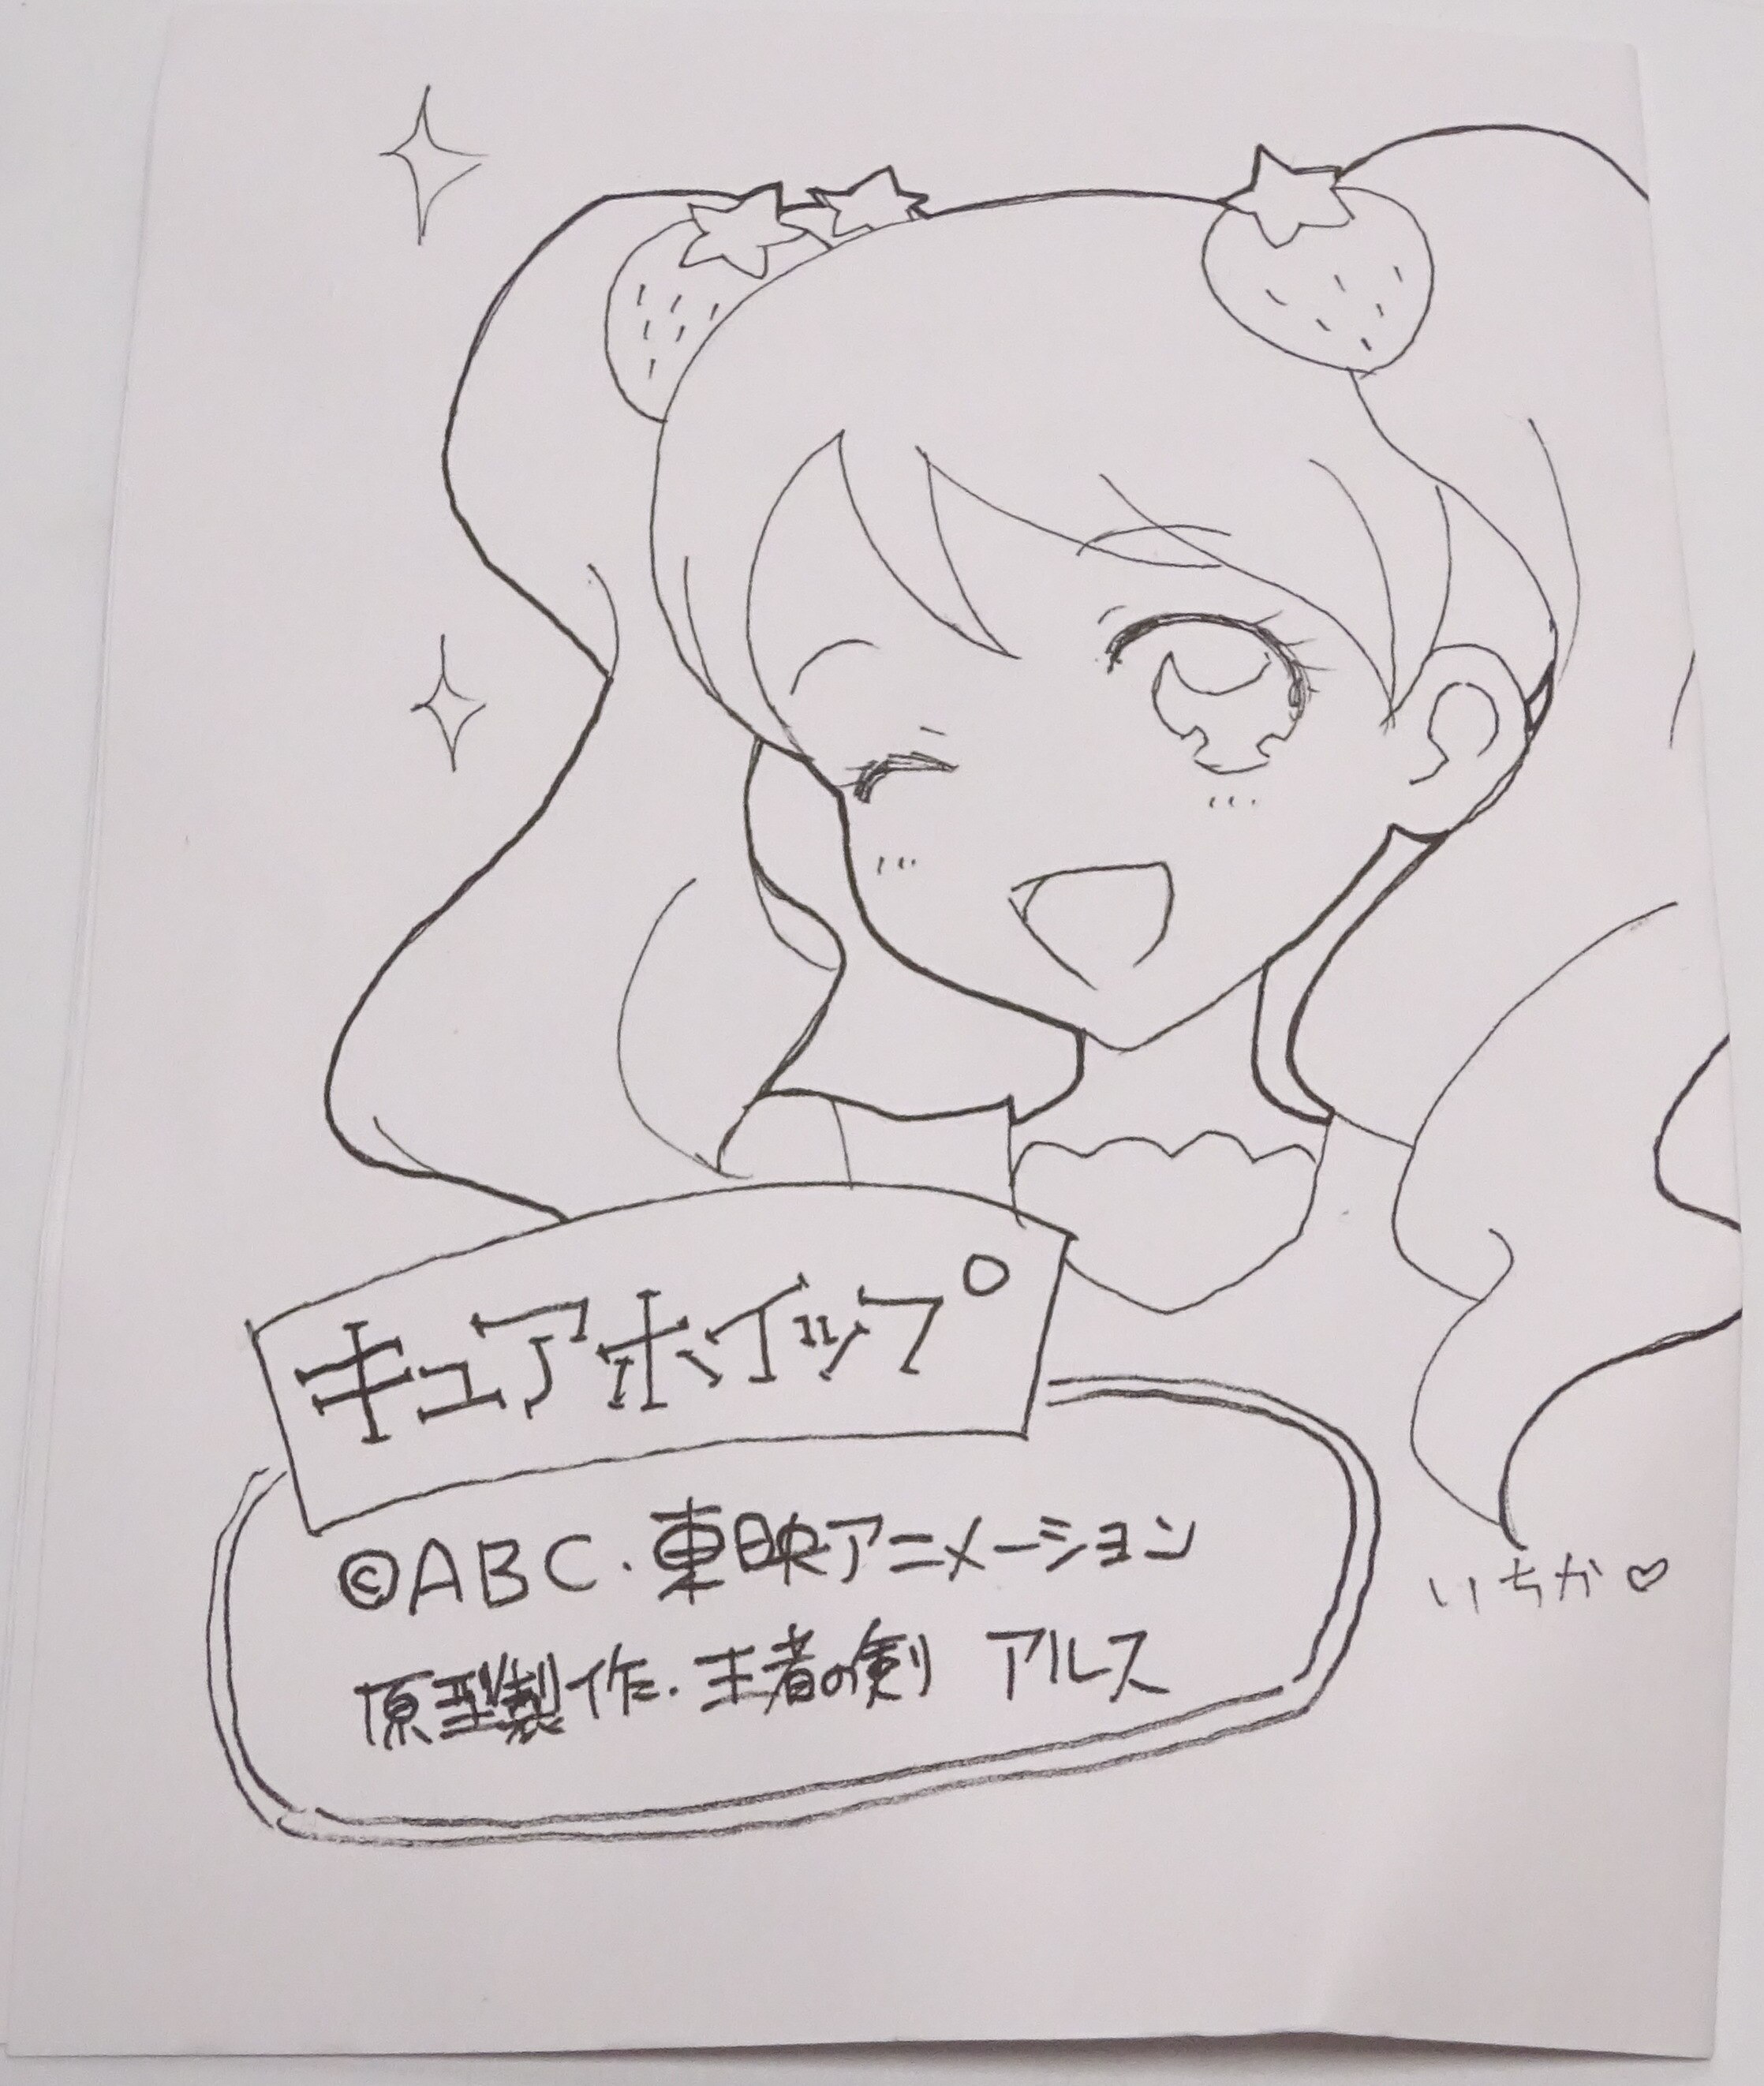 キュアホイップ
©ABC・東映アニメーション
原型製作・王者の剣 アルス
いちか♡